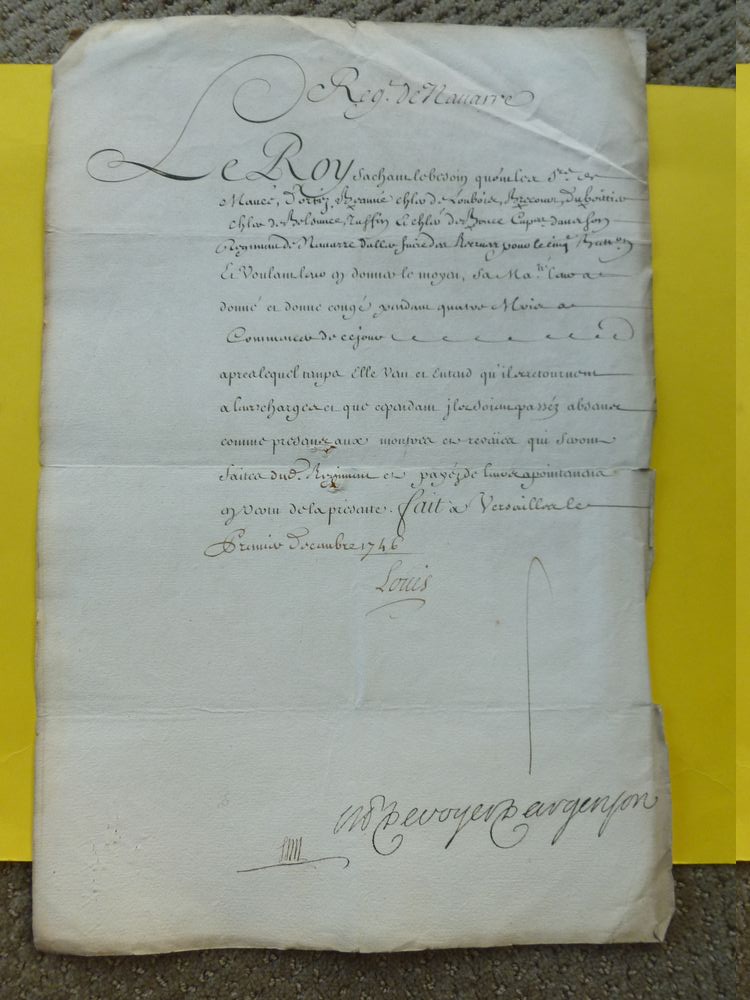 Reg.t de Nauarre
Le Roy Sachant le besoin qu'ont les S.rs de
Chler de Loubois,
chler de Belsunce, Ruffin Et chler de Cap.nes dans son
Regiment de Nauarre d'aller faire des Recrues pour le
Et Voulant leur en donner le moyen, Sa Ma.té leur a
donné et donne congé pendant quatre Mois a
Commancer de ce jour
apres lequel temps Elle Veut et Entend qu'ils retournent
a leurs charges et que cependant jls soient passéz absens
comme presens aux montres et reveües qui seront
faites dud. Regiment et payéz de leurs apointemens
en Vertu de la presente. fait a Versailles le
Premier Decembre 1746
Louis
De voyer D'argenson